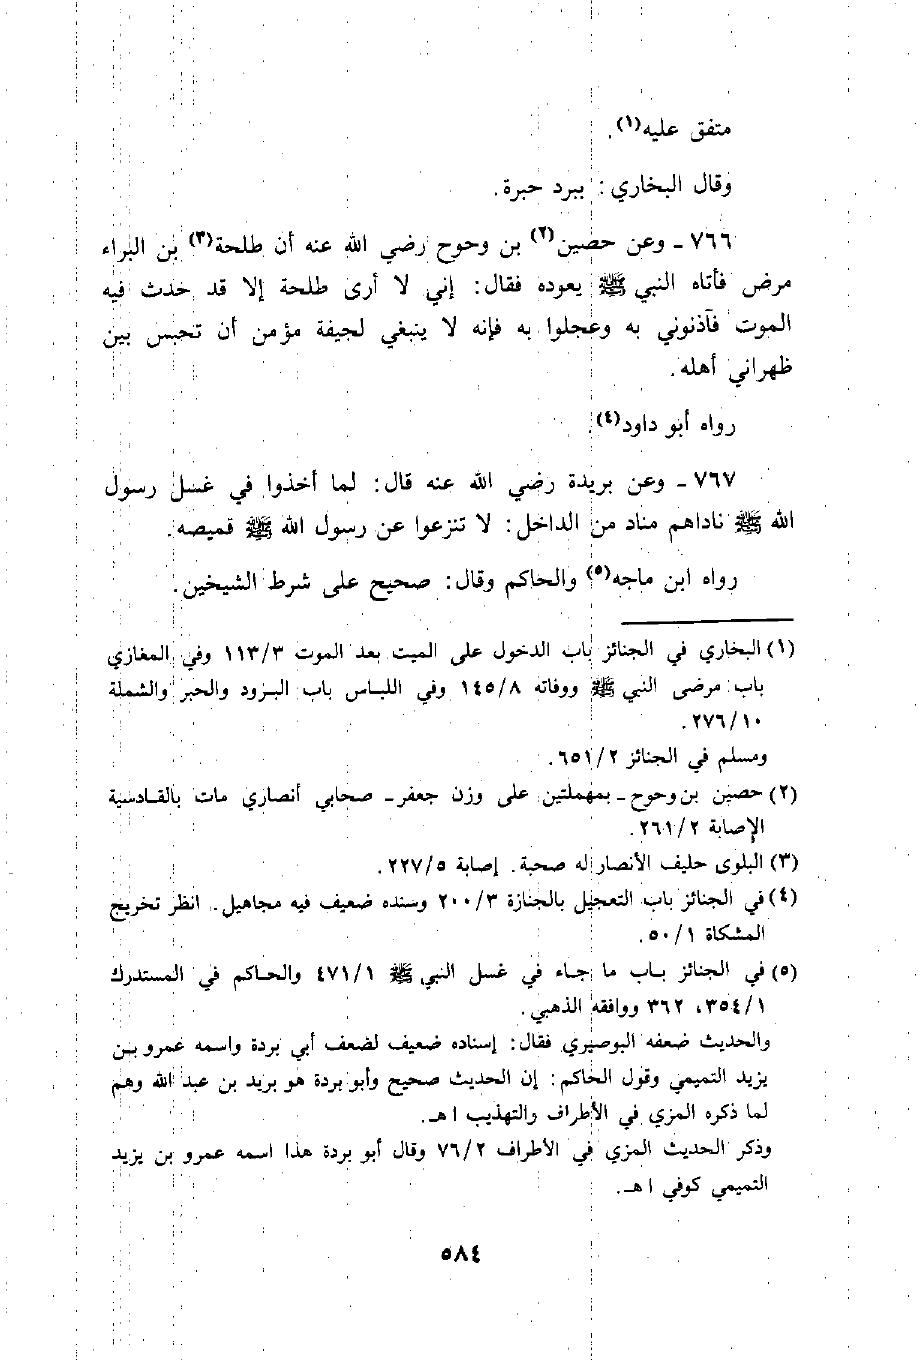 متفق عليه(١).
وقال البخاري: ببرد حبرة.
٧٦٦ ـ وعن حصين(٢) بن وحوح رضي الله عنه أن طلحة(٣) بن البراء
مرض فأتاه النبي ﷺ يعوده فقال: إني لا أرى طلحة إلا قد حدث فيه
الموت فآذنوني به وعجلوا به فإنه لا ينبغي لجيفة مؤمن أن تحبس بين
ظهراني أهله.
رواه أبو داود(٤).
٧٦٧ ـ وعن بريدة رضي الله عنه قال: لما أخذوا في غسل رسول
الله ﷺ ناداهم مناد من الداخل: لا تنزعوا عن رسول الله ﷺ قميصه.
رواه ابن ماجه(٥) والحاكم وقال: صحيح على شرط الشيخين.
(١) البخاري في الجنائز باب الدخول على الميت بعد الموت ١١٣/٣ وفي المغازي
باب مرضى النبي ﷺ ووفاته ١٤٥/٨ وفي اللباس باب البرود والحبر والشملة
٢٧٦/١٠.
ومسلم في الجنائز ٦٥١/٢.
(٢) حصين بن وحوح ـ بمهملتين على وزن جعفر ـ صحابي أنصاري مات بالقادسية
الإصابة ٢٦١/٢.
(٣) البلوى حليف الأنصار له صحبة. إصابة ٢٢٧/٥.
(٤) في الجنائز باب التعجيل بالجنازة ٢٠٠/٣ وسنده ضعيف فيه مجاهيل. انظر تخريج
المشكاة ٥٠/١.
(٥) في الجنائز باب ما جاء في غسل النبي ﷺ ٤٧١/١ والحاكم في المستدرك
٣٥٤/١، ٣٦٢ ووافقه الذهبي.
والحديث ضعفه البوصيري فقال: إسناده ضعيف لضعف أبي بردة واسمه عمرو بن
يزيد التميمي وقول الحاكم: إن الحديث صحيح وأبو بردة هو بريد بن عبد الله وهم
لما ذكره المزي في الأطراف والتهذيب ا هـ.
وذكر الحديث المزي في الأطراف ٧٦/٢ وقال أبو بردة هذا اسمه عمرو بن يزيد
التميمي كوفي ا هـ.
٥٨٤